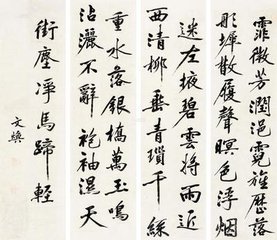 霏微芳潤浥霓旌歷落
彤墀散履聲暝色浮烟
迷左掖碧雲將雨近
西清柳垂青瑣千絲
重水落銀橋萬玉鳴
沾灑不辭袍袖濕天
街塵淨馬蹄輕
文